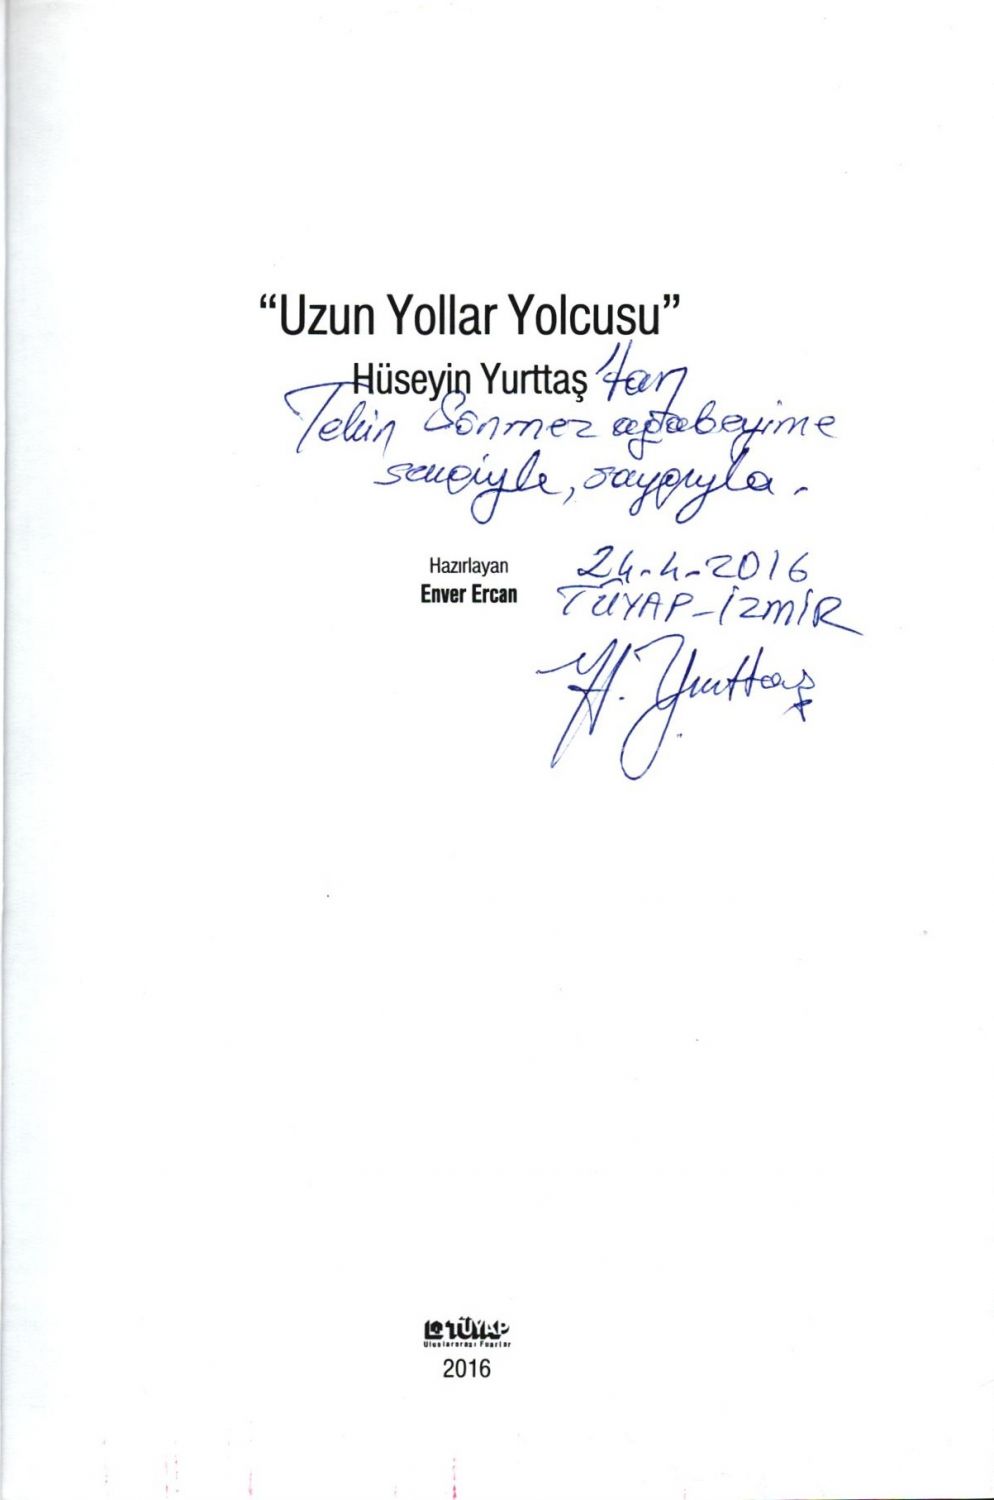 “Uzun Yollar Yolcusu”
Hüseyin Yurttaş 'tan
Tekin Sönmez ağabeyime
sevgiyle, saygıyla.
Hazırlayan
Enver Ercan
24-4-2016
TÜYAP-İZMİR
H. Yurttaş
TÜYAP
Uluslararası Fuarlar
2016